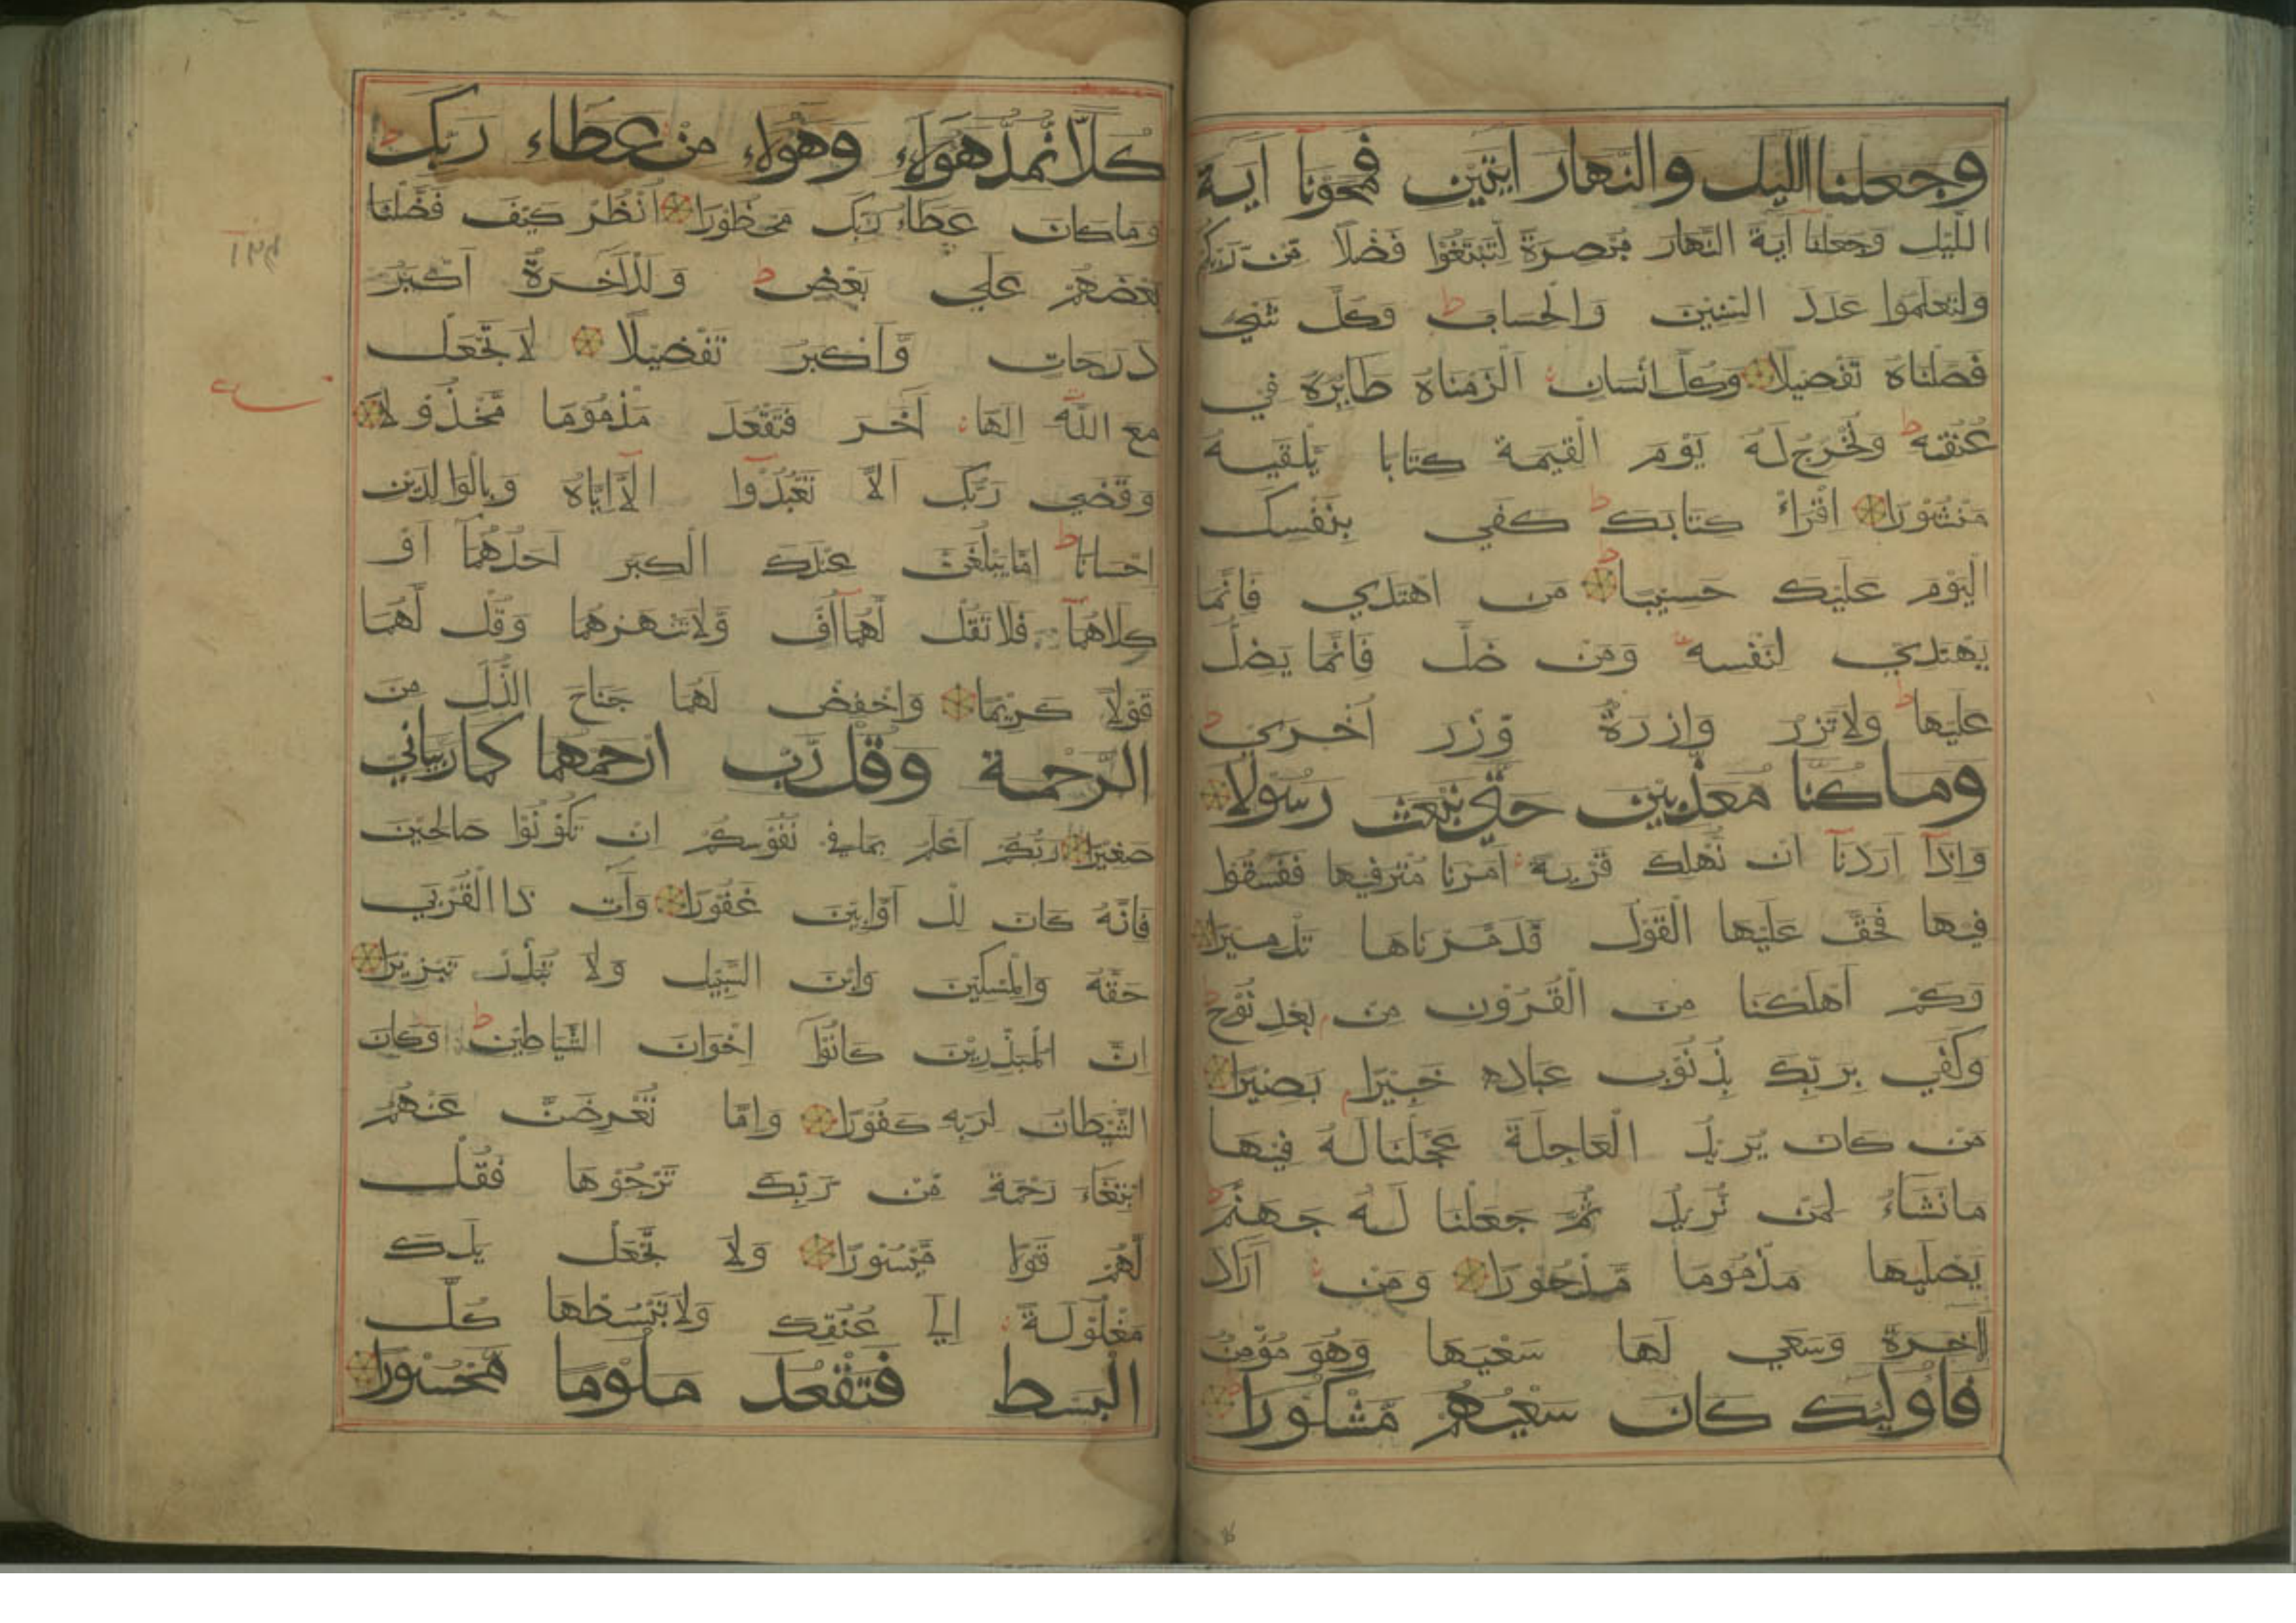 وجعلنا الليل والنهار ايتين فمحونا آية
الليل وجعلنا آية النهار مبصرة لتبتغوا فضلا من ربكم
ولتعلموا عدد السنين والحساب ط وكل شي
فصلناه تفصيلا وكل انسان الزمناه طايره في
عنقه ط ونخرج له يوم القيمة كتابا يلقيه
منشورا اقرأ كتابك ط كفي بنفسك
اليوم عليك حسيبا ط من اهتدي فانما
يهتدي لنفسه ومن ضل فانما يضل
عليها ط ولا تزر وازرة وزر اخري ط
وما كنا معذبين حتي نبعث رسولا
واذا اردنا ان نهلك قرية امرنا مترفيها ففسقوا
فيها فحق عليها القول فدمرناها تدميرا
وكم اهلكنا من القرون من بعد نوح ط
وكفي بربك بذنوب عباده خبيرا بصيرا
من كان يريد العاجلة عجلنا له فيها
ما نشاء لمن نريد ثم جعلنا له جهنم ط
يصليها مذموما مدحورا ومن اراد
الآخرة وسعي لها سعيها وهو مؤمن
فاوليك كان سعيهم مشكورا
كلا نمد هولاء وهولاء من عطاء ربك ط
وما كان عطاء ربك محظورا انظر كيف فضلنا
بعضهم علي بعض ط وللآخرة اكبر
درجات واكبر تفضيلا لا تجعل
مع الله الها آخر فتقعد مذموما مخذولا
وقضي ربك الا تعبدوا الا اياه وبالوالدين
احسانا ط اما يبلغن عندك الكبر احدهما او
كلاهما فلا تقل لهما اف ولا تنهرهما وقل لهما
قولا كريما واخفض لهما جناح الذل من
الرحمة وقل رب ارحمهما كما ربياني
صغيرا ربكم اعلم بما في نفوسكم ان تكونوا صالحين
فانه كان لل اوابين غفورا وآت ذا القربي
حقه والمسكين وابن السبيل ولا تبذر تبزيرا
ان المبذرين كانوا اخوان الشياطين ط وكان
الشيطان لربه كفورا واما تعرضن عنهم
ابتغاء رحمة من ربك ترجوها فقل
لهم قولا ميسورا ولا تجعل يدك
مغلولة الي عنقك ولا تبسطها كل
البسط فتقعد ملوما محسورا